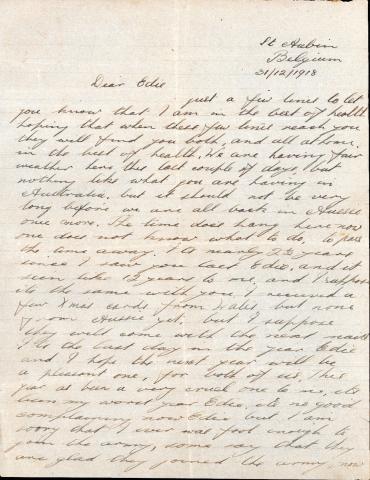 St Aubin
Belgium
31/12/1918
Dear Edie
just a few lines to let
you know that I am in the best of health
hoping that when these few lines reach you
they will find you both, and all at home.
in the best of health, We are having fair
weather here this last couple of days but
nothing like what you are having in
Australia. but it should not be very
long before we are all back in Aussie
once more. The time does hang here now
one does not know what to do, to pass
the time away. its nearly 2½ years
since I saw you last Edie, and it
seem like 12 years to me, and I suppose
its the same with you. I received a
few Xmas cards from but none
from Aussie yet, but I suppose
they will come with the next mail
its the last day in the year Edie
and I hope the next year will be
a pleasant one, for both of us. This
year as been a very cruel one to me, its
been my worst year Edie. its no good
complaining now Edie but I am
sorry that I ever was fool enough to
join the army, some say that they
are glad they joined the army, now